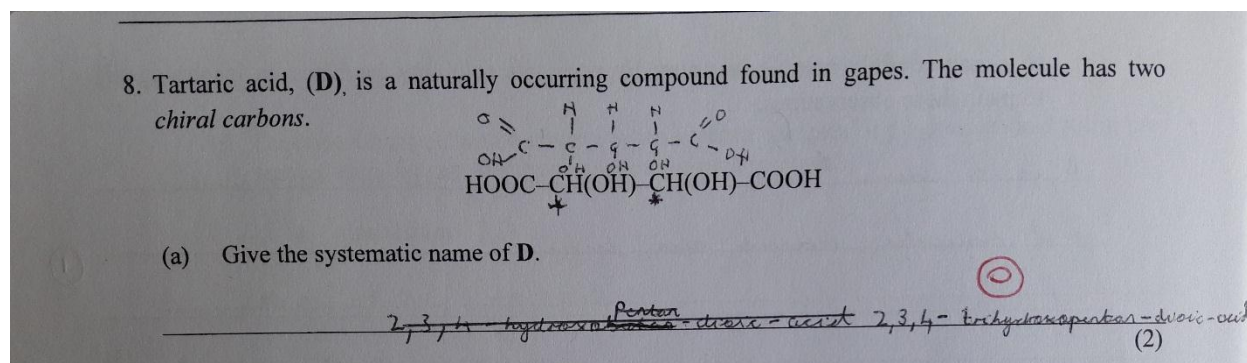 8. Tartaric acid, (D), is a naturally occurring compound found in gapes. The molecule has two
chiral carbons.
H H H
O O
C - C - C - C - C
OH OH OH OH OH
HOOC–CH(OH)–CH(OH)–COOH
* *
(a) Give the systematic name of D.
0
Pentan
2,3,4 - - dioic - acid 2,3,4 - trihydroxopentan - dioic - acid
(2)